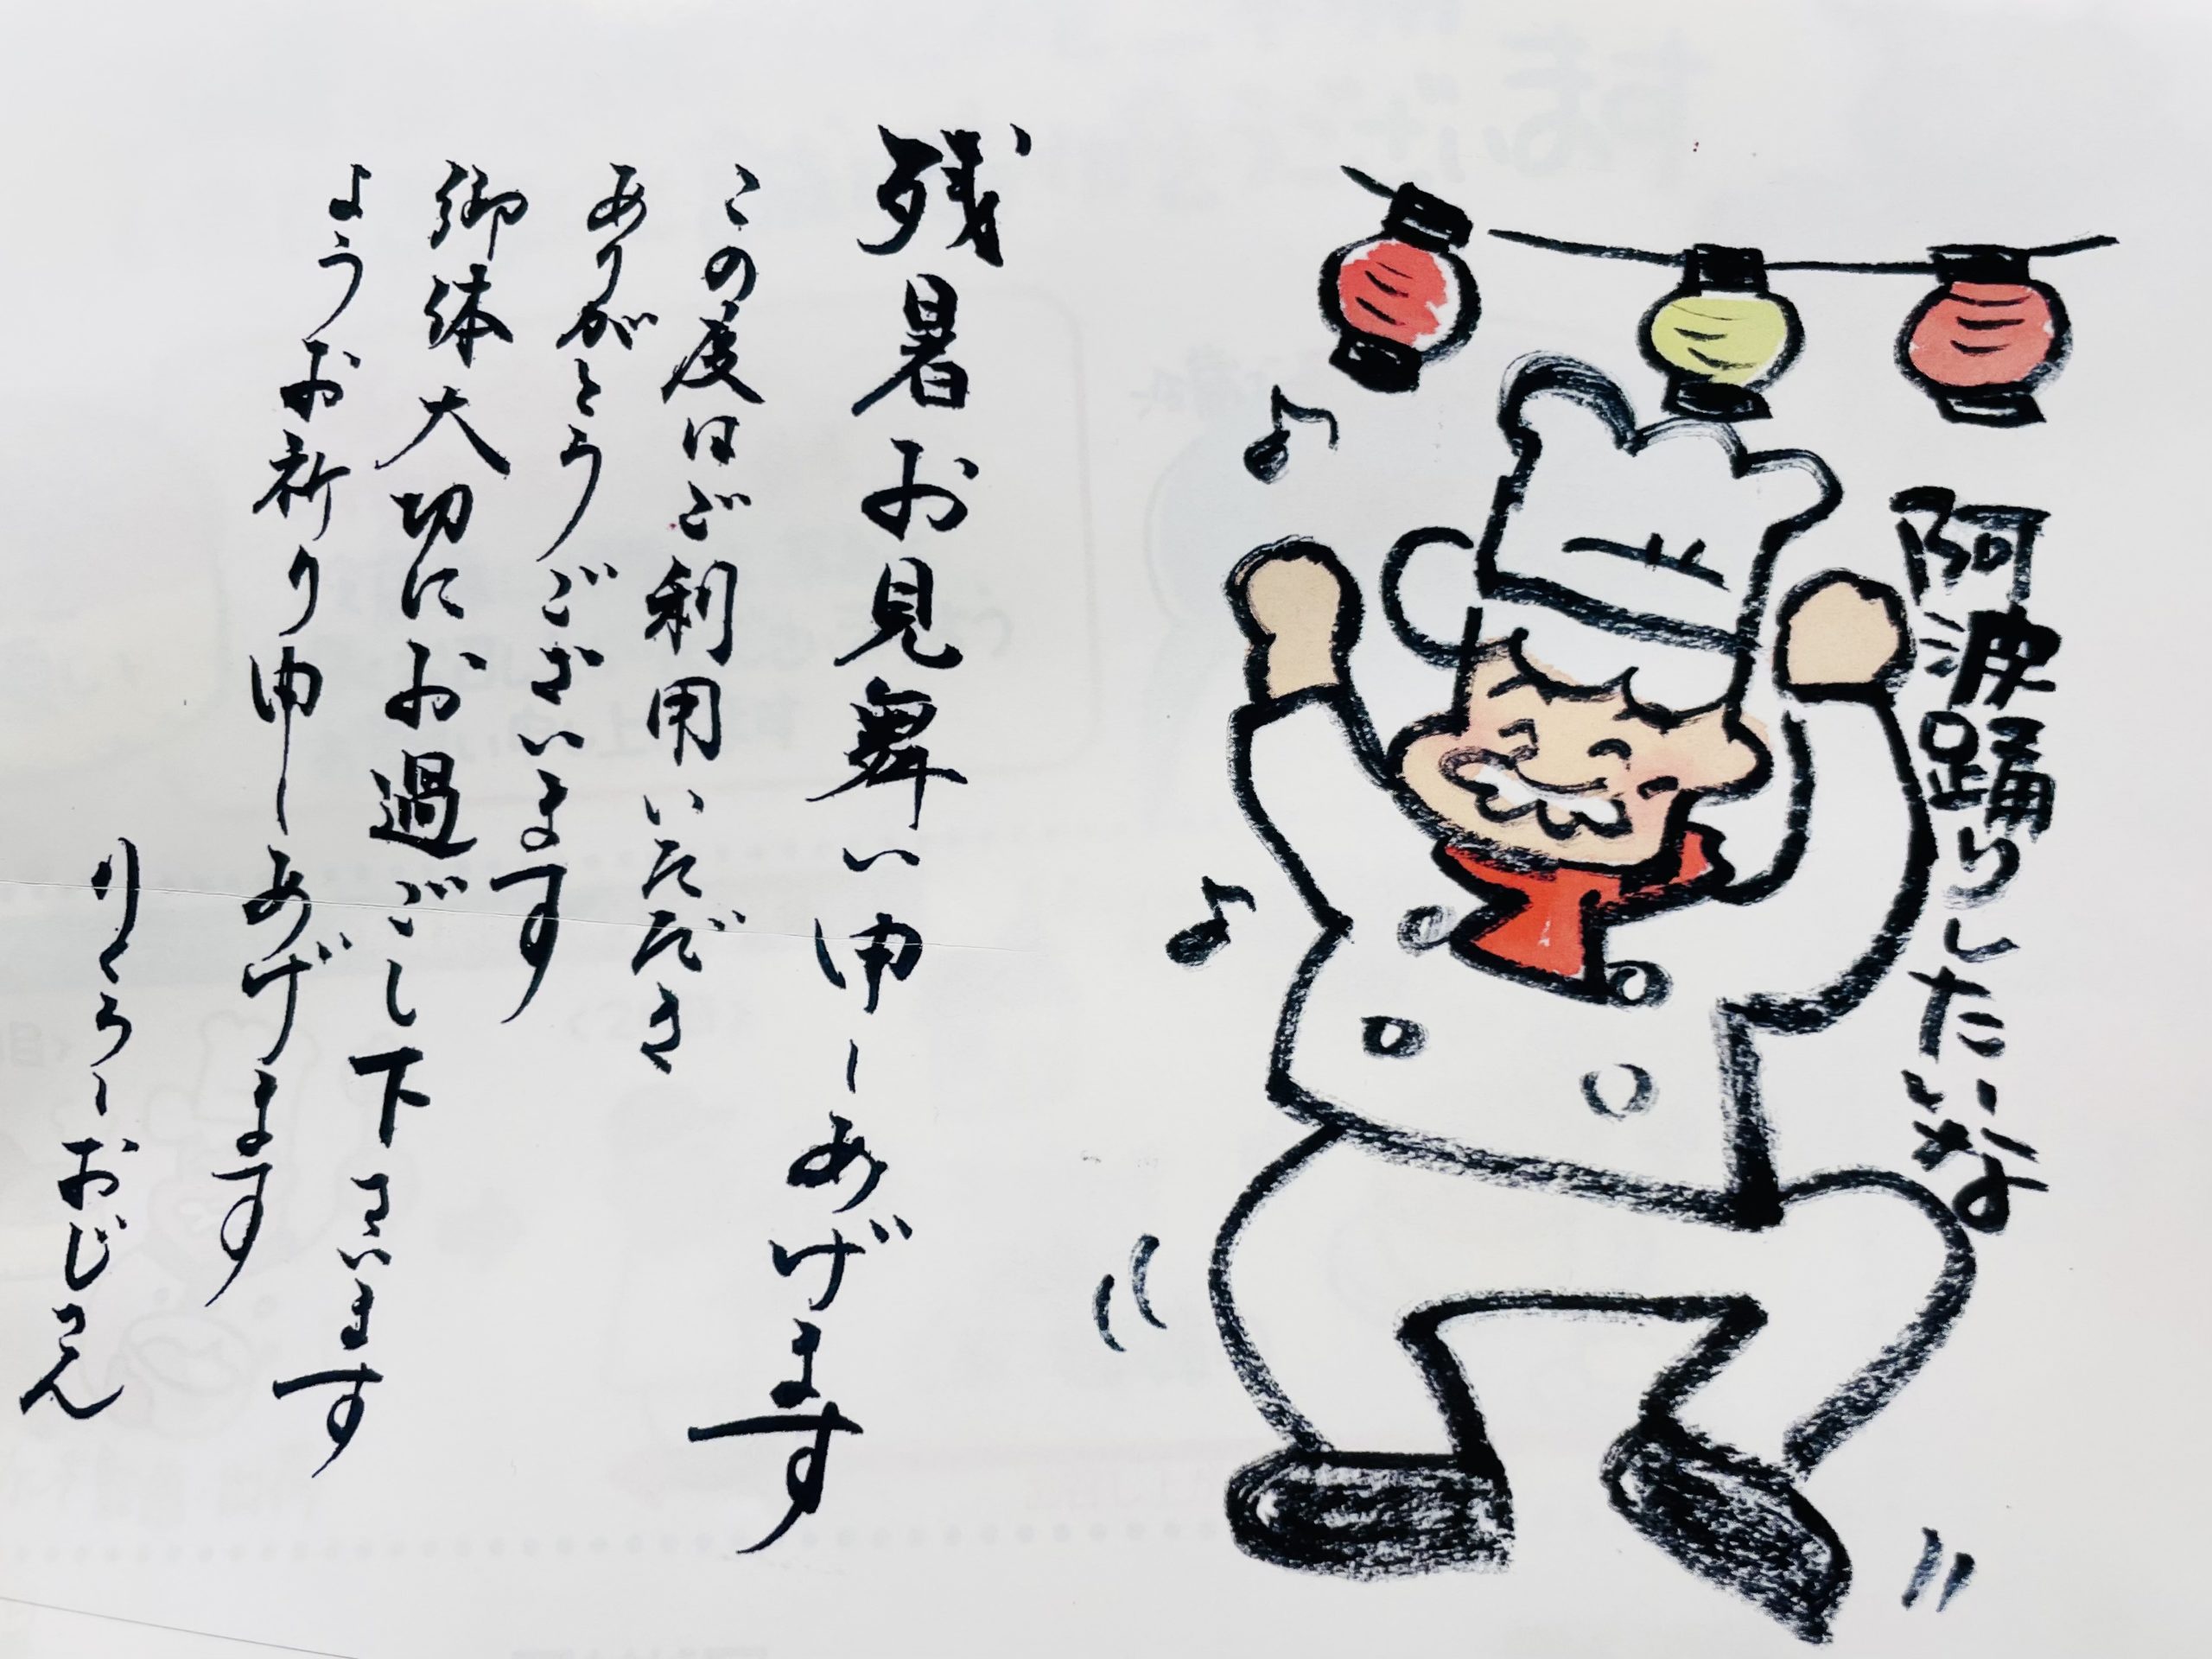 阿波踊りしたいな
残暑お見舞い申しあげます
この度はご利用いただき
ありがとうございます
御体大切にお過ごし下さいます
ようお祈り申しあげます
りくろーおじさん